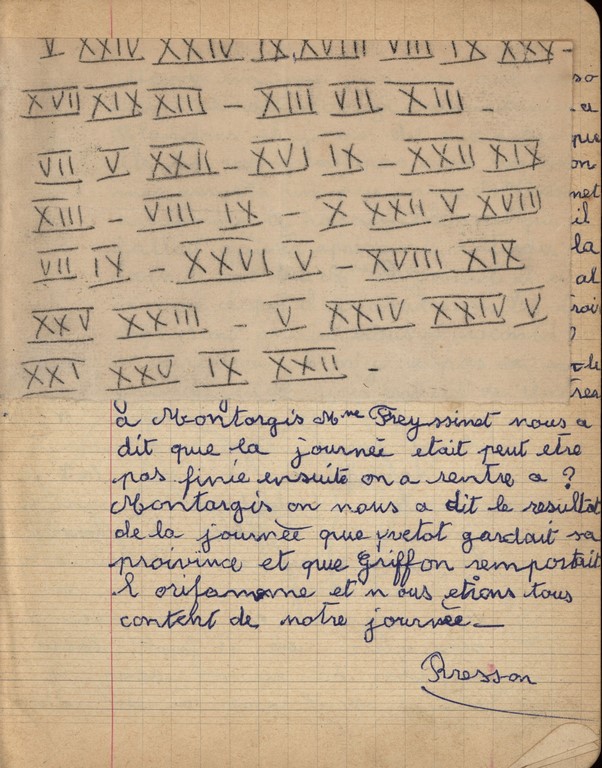 V XXIV XXIV IX XVIII VIII IX XXX -
XVII XIX XIII - XIII VII XIII -
VII V XXII - XVI IX - XXII XIX
XIII - VIII IX - X XXII V XVIII
VII IX - XXVI V - XVIII XIX
XXV XXIII - V XXIV XXIV V
XXI XXV IX XXII -
à Montargis Mme Freyssinet nous a
dit que la journée etait peut etre
pas finie ensuite on a rentre a ?
Montargis on nous a dit le resultat
de la journèe que yvetot gardait sa
proivince et que Griffon remportait
l orifamme et nous etions tous
content de notre journèe _
Bresson